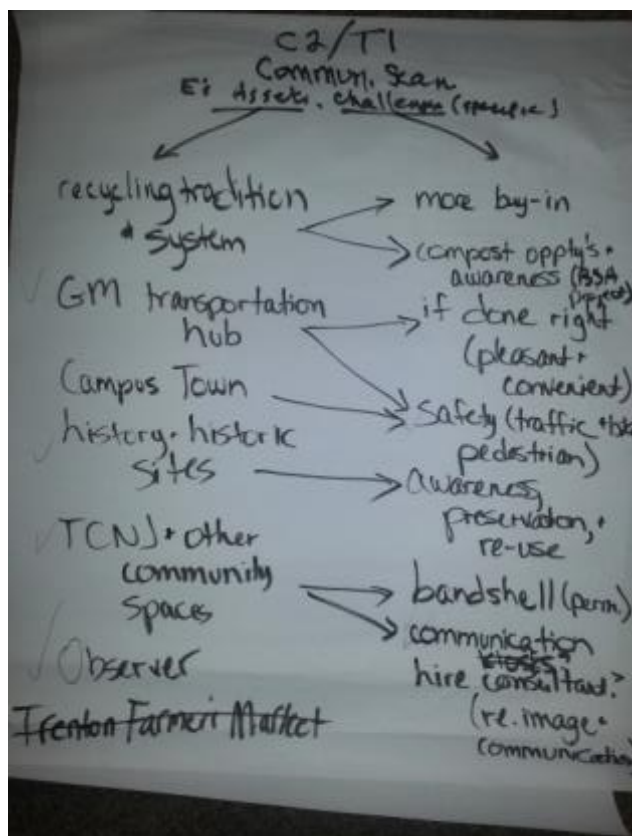 C2/T1
Commun. Scan
E: Assets. Challenges (specific)
recycling tradition
+ system
GM transportation
hub
Campus Town
history + historic
sites
TCNJ + other
community
spaces
Observer
Trenton Farmers Market
more buy-in
compost oppty's +
awareness (BSA
project)
if done right
(pleasant +
convenient)
Safety (traffic +
pedestrian)
awareness,
preservation, +
re-use
bandshell (perm.)
communication
kiosks
hire consultant?
(re. image +
communication)